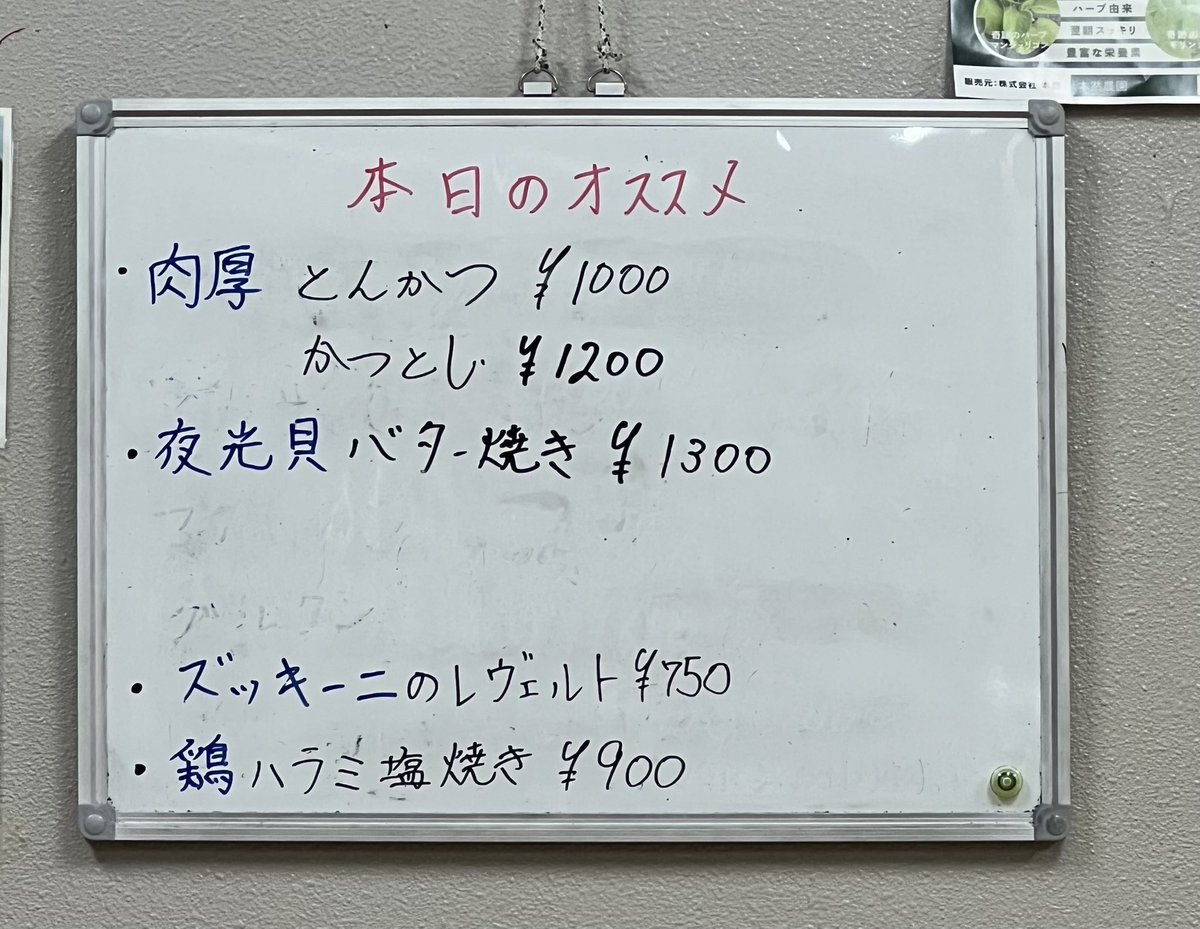 ハーブ由来
翌朝スッキリ
豊富な栄養素
奇跡のハーブ
マンジェリコン
販売元:株式会社
本日のオススメ
・肉厚 とんかつ ¥1000
かつとじ ¥1200
・夜光貝バター焼き ¥1300
・ズッキーニのレヴェルト ¥750
・鶏ハラミ塩焼き ¥900